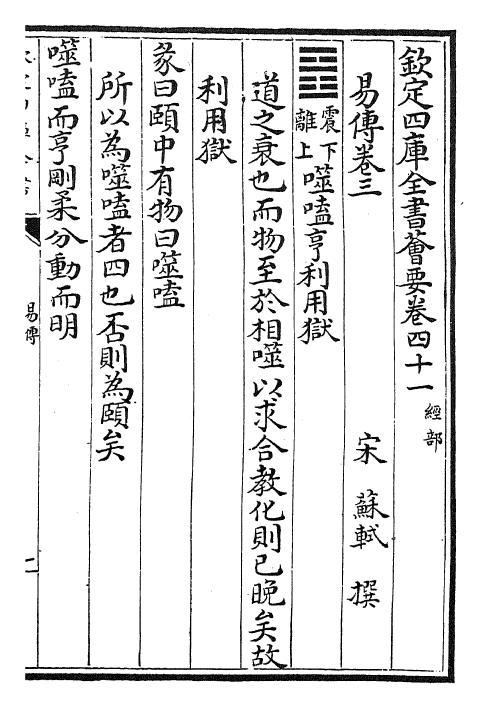 欽定四庫全書薈要卷四十一 經部
易傳卷三
宋 蘇軾 撰
震下離上 噬嗑亨利用獄
道之衰也而物至於相噬以求合教化則已晚矣故
利用獄
彖曰頤中有物曰噬嗑
所以為噬嗑者四也否則為頤矣
噬嗑而亨剛柔分動而明
易傳